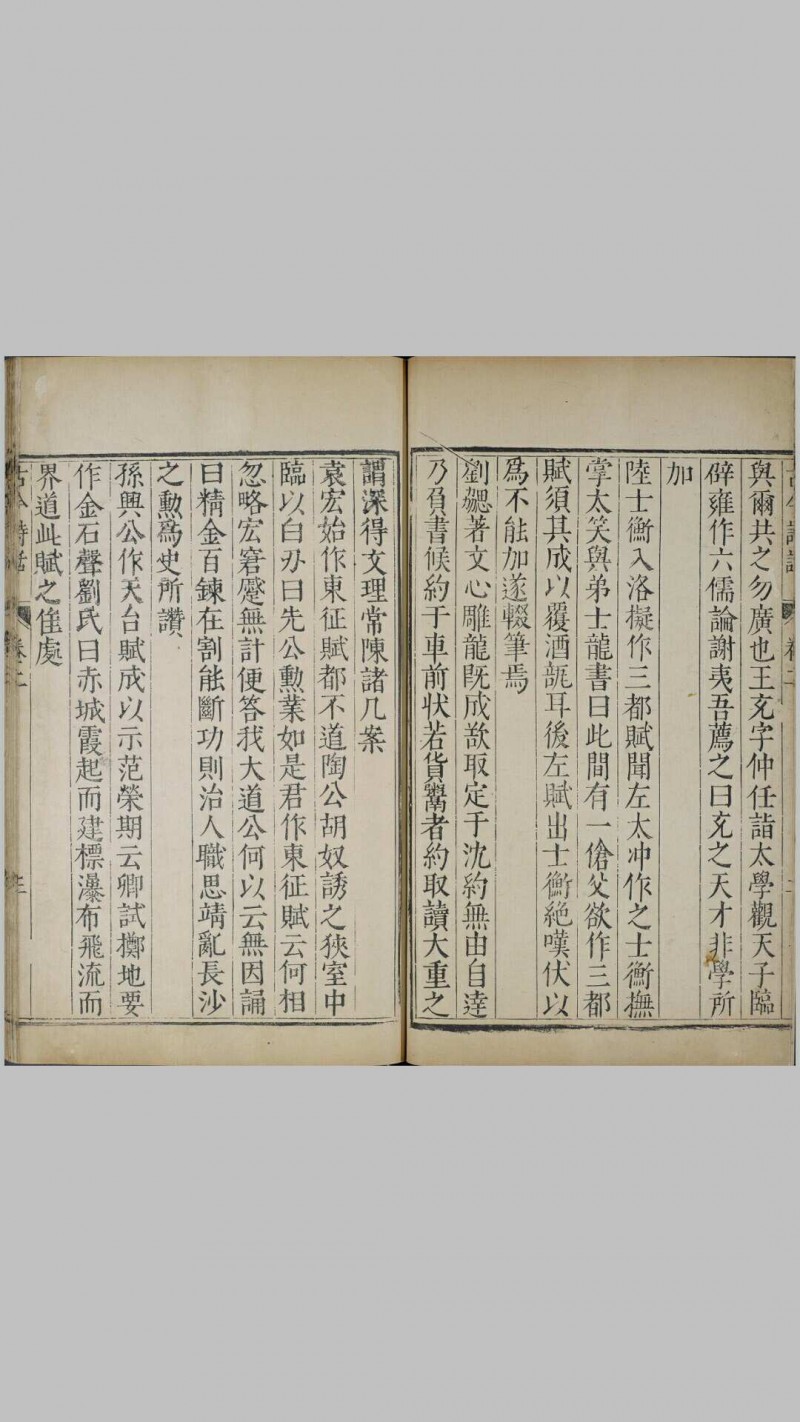 與爾共之勿廣也王充字仲任詣太學觀天子臨
辟雍作六儒論謝夷吾薦之曰充之天才非學所
加
陸士衡入洛擬作三都賦聞左太冲作之士衡撫
掌大笑與弟士龍書曰此間有一傖父欲作三都
賦須其成以覆酒瓿耳後左賦出士衡絶嘆伏以
爲不能加遂輟筆焉
劉勰著文心雕龍既成欲取定于沈約無由自達
乃負書候約于車前狀若貨鬻者約取讀大重之
謂深得文理常陳諸几案
袁宏始作東征賦都不道陶公胡奴誘之狹室中
臨以白刃曰先公勲業如是君作東征賦云何相
忽略宏窘蹙無計便答我大道公何以云無因誦
曰精金百鍊在割能斷功則治人職思靖亂長沙
之勲爲史所讚
孫興公作天台賦成以示范榮期云卿試擲地要
作金石聲劉氏曰赤城霞起而建標瀑布飛流而
界道此賦之佳處
古今詩話 卷二